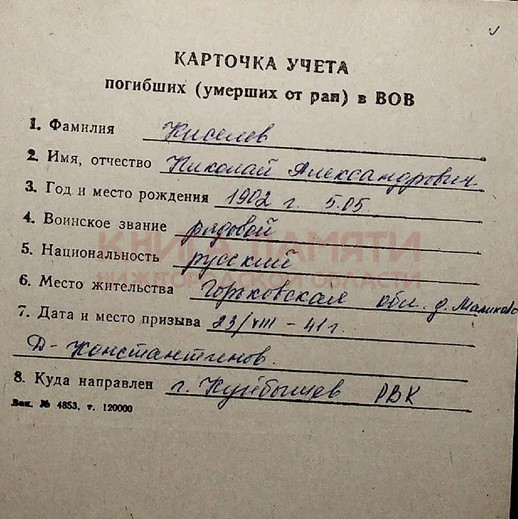 КАРТОЧКА УЧЕТА
погибших (умерших от ран) в ВОВ
1. Фамилия Киселев
2. Имя, отчество Николай Александрович
3. Год и место рождения 1902 г. 5.05.
4. Воинское звание рядовой
КНИГА ПАМЯТИ
5. Национальность русский
НИЖЕГОРОДСКОЙ ОБЛАСТИ
6. Место жительства Горьковская обл. д. Маликово
7. Дата и место призыва 23/VIII - 41 г.
Д-Константинов.
8. Куда направлен г. Куйбышев РВК
Зак. № 4853, т. 120000